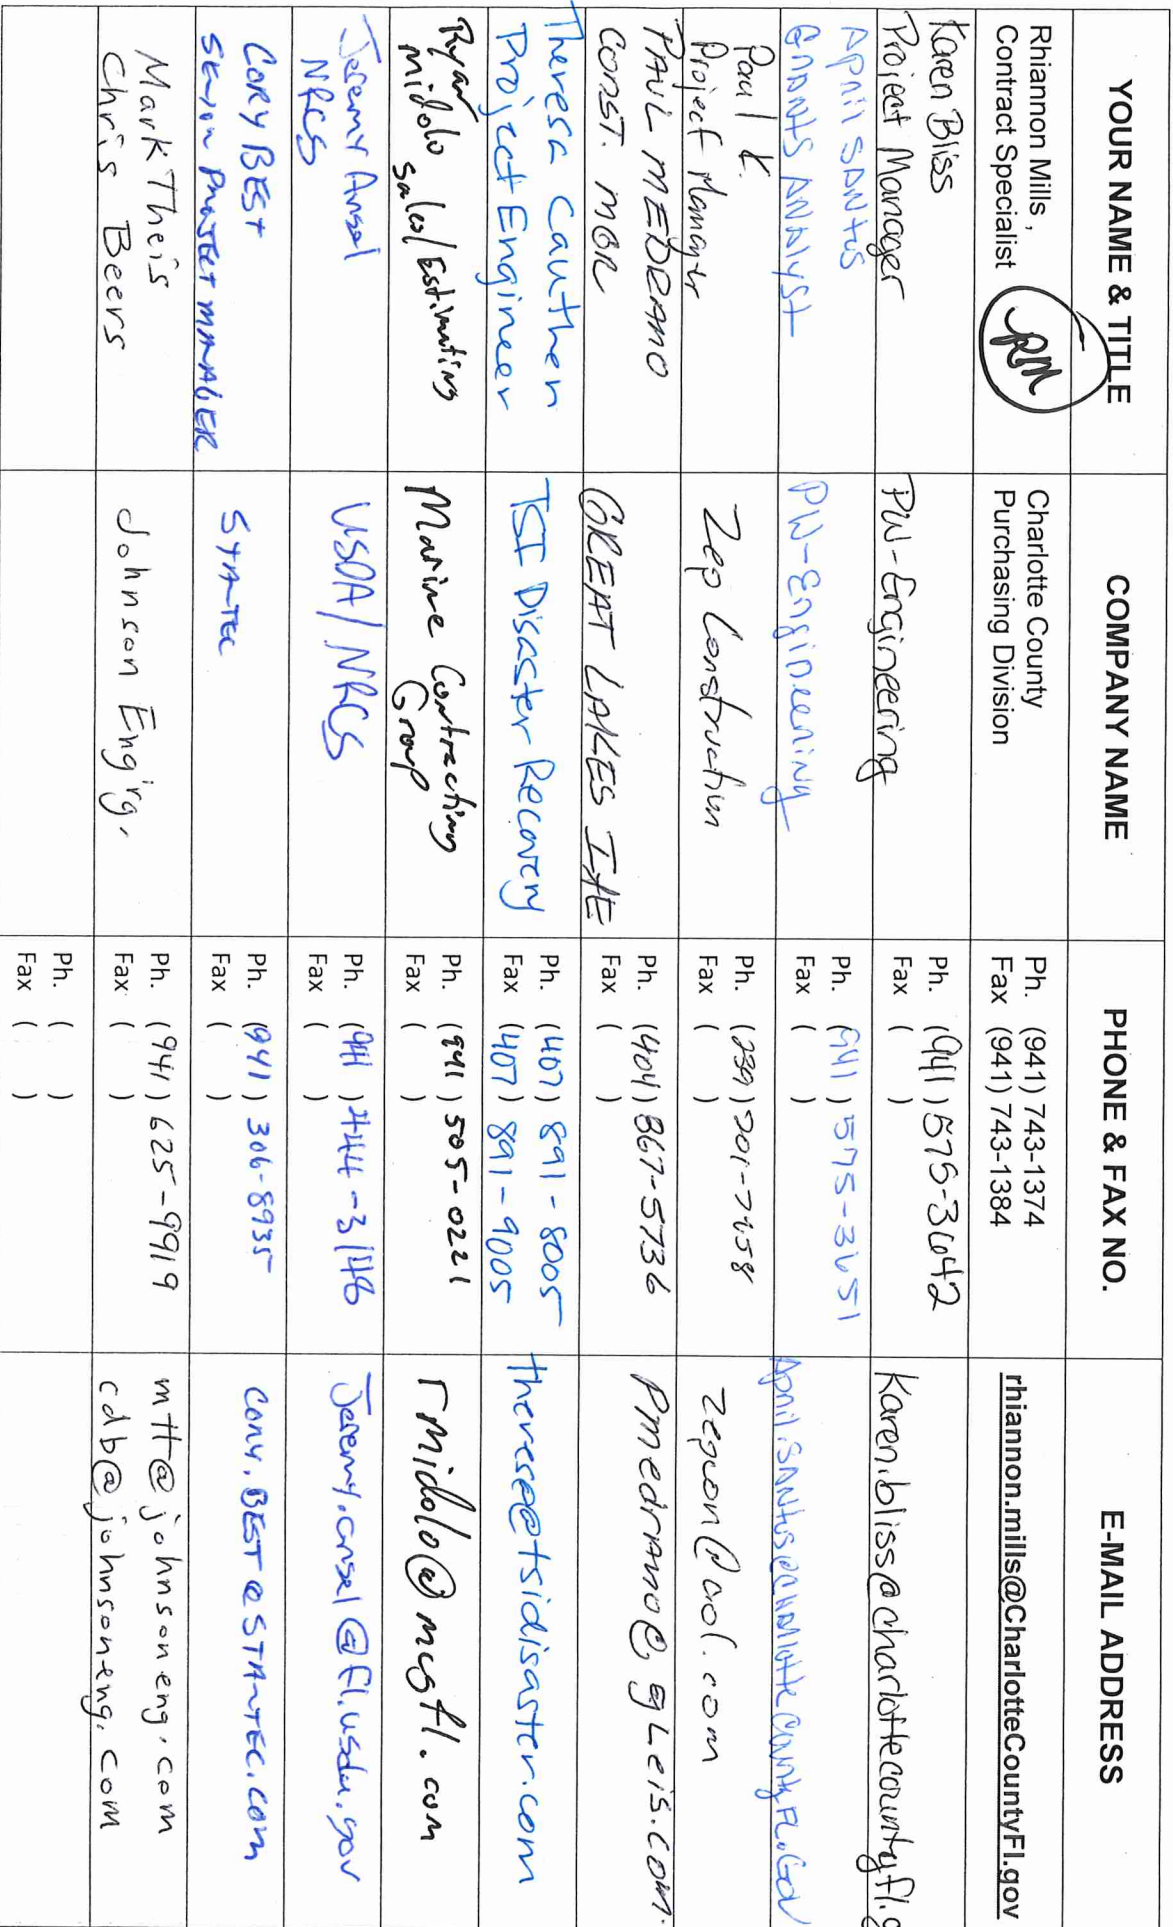 YOUR NAME & TITLE
COMPANY NAME
PHONE & FAX NO.
E-MAIL ADDRESS
Rhiannon Mills,
Contract Specialist
RM
Charlotte County
Purchasing Division
Ph. (941) 743-1374
Fax (941) 743-1384
rhiannon.mills@CharlotteCountyFl.gov
Karen Bliss
Project Manager
PW-Engineering
Ph. (941) 575-3642
Fax ( )
Karen.bliss@charlottecountyfl.g
April SANtos
GRANTS ANAlyst
PW-Engineering
Ph. (941) 575-3651
Fax ( )
April.SANtos@CHARlotteCountyFL.Gov
Paul K.
Project Manager
Zep Construction
Ph. (239)
Fax ( )
zepcon@aol.com
PAUL MEDRANO
CONST. MGR
GREAT LAKES I&E
Ph. (404) 867-5736
Fax ( )
Pmedrano@gLeis.com.
Theresa Cauthen
Project Engineer
TSI Disaster Recovery
Ph. (407) 891-8005
Fax (407) 891-9005
theresa@tsidisaster.com
Ryan
Midolo Sales/Estimating
Marine Contracting
Group
Ph. (941) 505-0221
Fax ( )
rmidolo@mcgfl.com
Jeremy Ansel
NRCS
USDA/NRCS
Ph. (941)
Fax ( )
Jeremy.ansel@fl.usda.gov
CORY BEST
SENIOR PROJECT MANAGER
STANTEC
Ph. (941) 306-8935
Fax ( )
CORY.BEST@STANTEC.com
Mark Theis
Chris Beers
Johnson Engirg.
Ph. (941) 625-9919
Fax ( )
mtt@johnsoneng.com
cdb@johnsoneng.com
Ph. ( )
Fax ( )